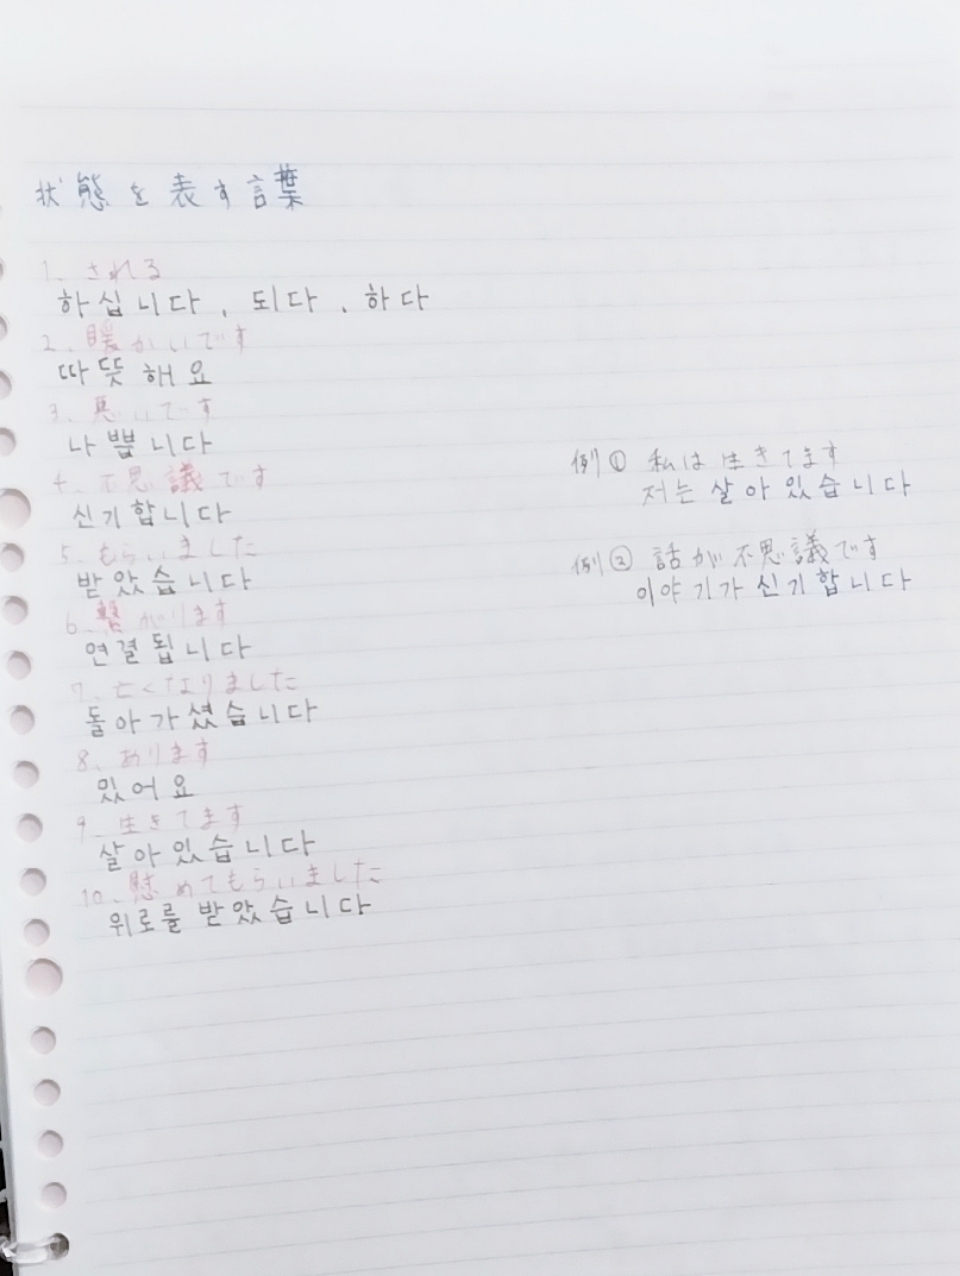 状態を表す言葉
1、される
하십니다, 되다, 하다
2、暖かいです
따뜻해요
3、悪いです
나쁩니다
4、不思議です
신기합니다
5、もらいました
받았습니다
6、繋がります
연결됩니다
7、亡くなりました
돌아가셨습니다
8、あります
있어요
9、生きてます
살아있습니다
10、慰めてもらいました
위로를 받았습니다
例① 私は生きてます
저는 살아있습니다
例② 話が不思議です
이야기가 신기합니다